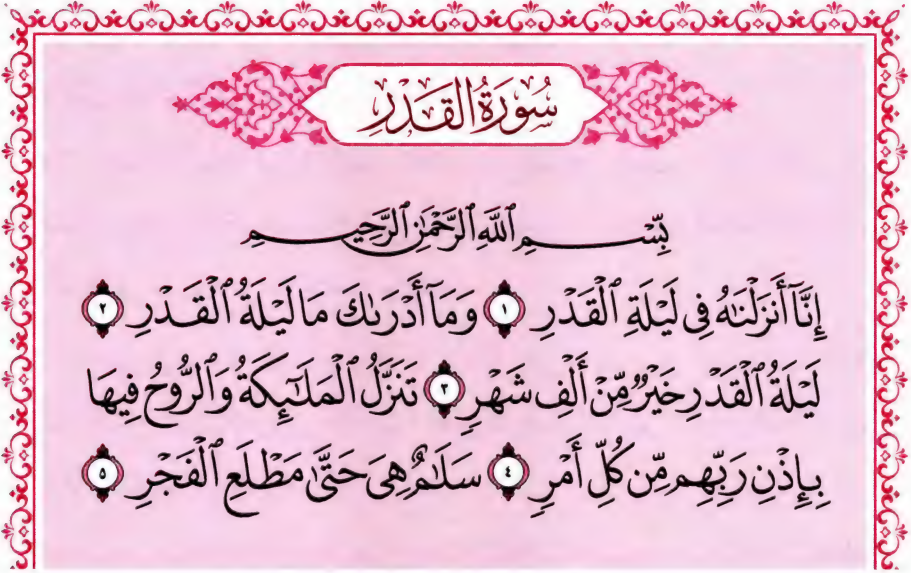 سُورَةُ الْقَدْرِ
بِّسْمِ ٱللَّهِ ٱلرَّحْمَٰنِ ٱلرَّحِيمِ
إِنَّآ أَنزَلْنَٰهُ فِى لَيْلَةِ ٱلْقَدْرِ ١ وَمَآ أَدْرَىٰكَ مَا لَيْلَةُ ٱلْقَدْرِ ٢
لَيْلَةُ ٱلْقَدْرِ خَيْرٌ مِّنْ أَلْفِ شَهْرٍ ٣ تَنَزَّلُ ٱلْمَلَٰٓئِكَةُ وَٱلرُّوحُ فِيهَا
بِإِذْنِ رَبِّهِم مِّن كُلِّ أَمْرٍ ٤ سَلَٰمٌ هِىَ حَتَّىٰ مَطْلَعِ ٱلْفَجْرِ ٥